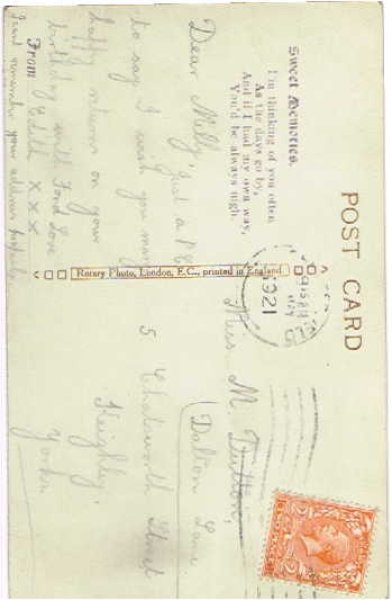 POST CARD
Sweet Memories.
I'm thinking of you often
As the days go by,
And if I had my own way,
You'd be always nigh.
Dear Milly,
Just a P.C
to say I wish you many
happy returns on your
birthday with Fond Love
From Edith x x x
I cant remember your address
Rotary Photo, London, E.C., printed in England
9.15 PM
1921
Miss. M. Dutton,
(Dalton Lane
5 Chatsworth Street
Keighley,
Yorks